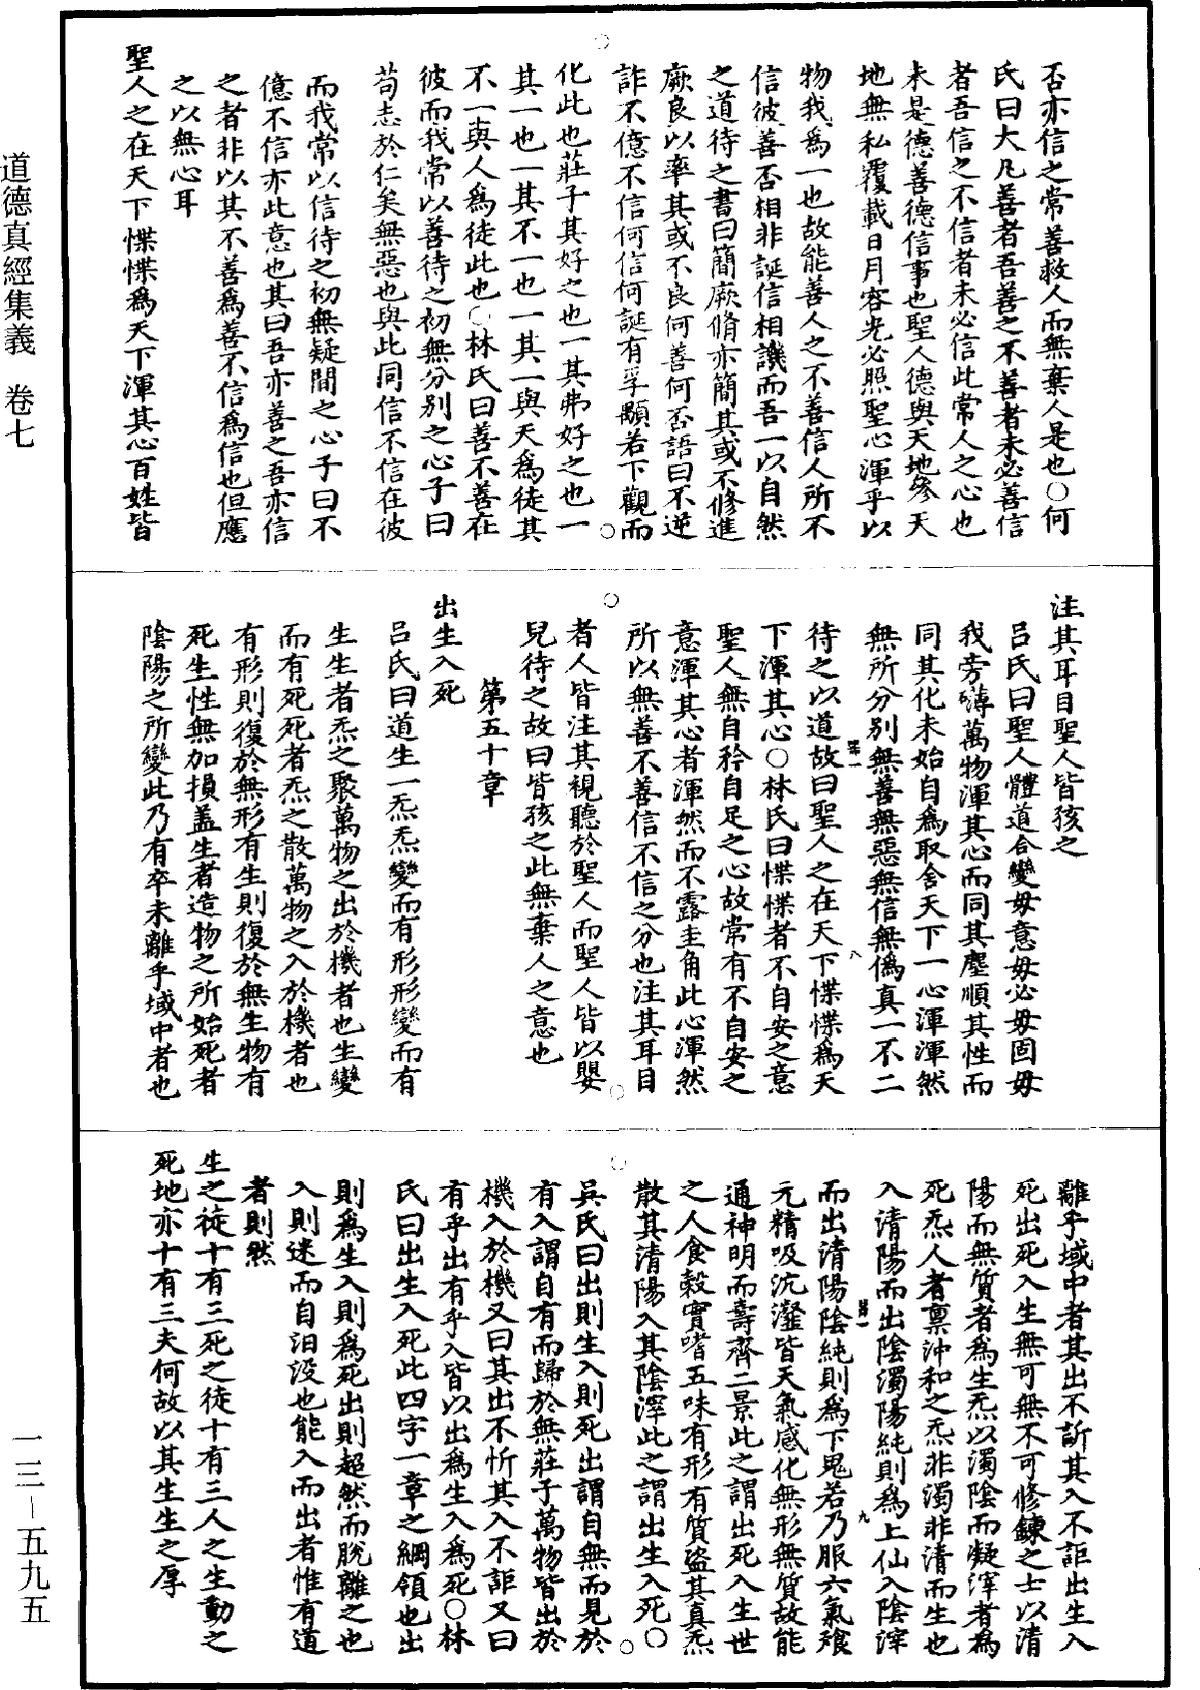 否亦信之常善救人而無棄人是也○何
氏曰大凡善者吾善之不善者未必善信
者吾信之不信者未必信此常人之心也
未是德善德信事也聖人德與天地參天
地無私覆載日月容光必照聖心渾乎以
物我爲一也故能善人之不善信人所不
信彼善否相非誕信相譏而吾一以自然
之道待之書曰簡厥脩亦簡其或不修進
厥良以率其或不良何善何否語曰不逆
詐不億不信何信何誕有孚顒若下觀而
化此也莊子其好之也一其弗好之也一
其一也一其不一也一其一與天爲徒其
不一與人爲徒此也○林氏曰善不善在
彼而我常以善待之初無分別之心子曰
苟志於仁矣無惡也與此同信不信在彼
而我常以信待之初無疑間之心子曰不
億不信亦此意也其曰吾亦善之吾亦信
之者非以其不善爲善不信爲信也但應
之以無心耳
聖人之在天下惵惵爲天下渾其心百姓皆
注其耳目聖人皆孩之
呂氏曰聖人體道合變毋意毋必毋固毋
我旁礴萬物渾其心而同其塵順其性而
同其化未始自爲取舍天下一心渾渾然
無所分別無善無惡無信無僞真一不二
待之以道故曰聖人之在天下惵惵爲天
下渾其心○林氏曰惵惵者不自安之意
聖人無自矜自足之心故常有不自安之
意渾其心者渾然而不露圭角此心渾然
所以無善不善信不信之分也注其耳目
者人皆注其視聽於聖人而聖人皆以嬰
兒待之故曰皆孩之此無棄人之意也
第五十章
出生入死
呂氏曰道生一炁炁變而有形形變而有
生生者炁之聚萬物之出於機者也生變
而有死死者炁之散萬物之入於機者也
有形則復於無形有生則復於無生物有
死生性無加損盖生者造物之所始死者
陰陽之所變此乃有卒未離乎域中者也
離乎域中者其出不訢其入不詎出生入
死出死入生無可無不可修鍊之士以清
陽而無質者爲生炁以濁陰而凝滓者爲
死炁人者禀沖和之炁非濁非清而生也
入清陽而出陰濁陽純則爲上仙入陰滓
而出清陽陰純則爲下鬼若乃服六氣飡
元精吸沆瀣皆天氣感化無形無質故能
通神明而壽齊二景此之謂出死入生世
之人食穀實嗜五味有形有質盜其真炁
散其清陽入其陰滓此之謂出生入死○
吳氏曰出則生入則死出謂自無而見於
有入謂自有而歸於無莊子萬物皆出於
機入於機又曰其出不忻其入不詎又曰
有乎出有乎入皆以出爲生入爲死○林
氏曰出生入死此四字一章之綱領也出
則爲生入則爲死出則超然而脫離之也
入則迷而自汨没也能入而出者惟有道
者則然
生之徒十有三死之徒十有三人之生動之
死地亦十有三夫何故以其生生之厚
道德真經集義　卷七
一三－五九五
八
九